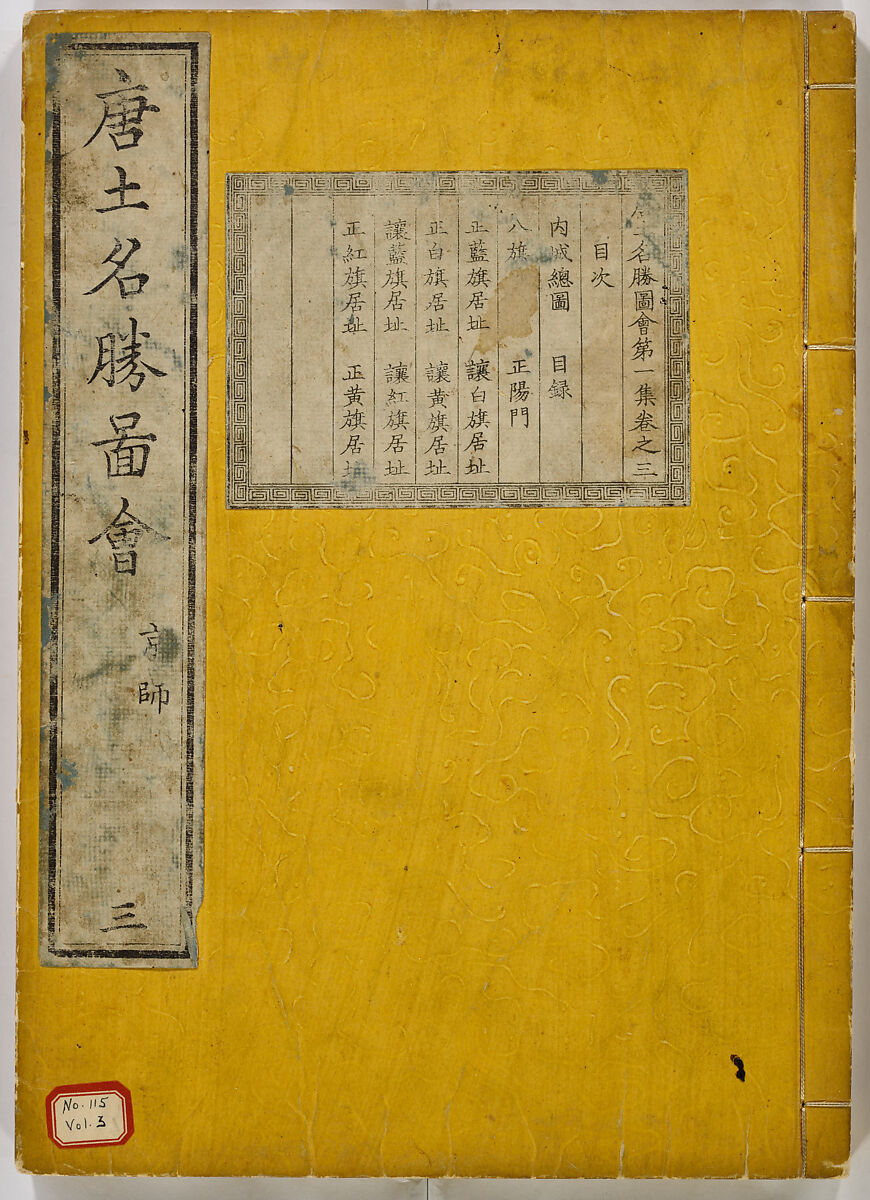 唐土名勝圖會
京師
三
唐土名勝圖會第一集卷之三
目次
内城總圖 目録
八旗 正陽門
正藍旗居址 讓白旗居址
正白旗居址 讓黄旗居址
讓藍旗居址 讓紅旗居址
正紅旗居址 正黄旗居址
No. 115
Vol. 3